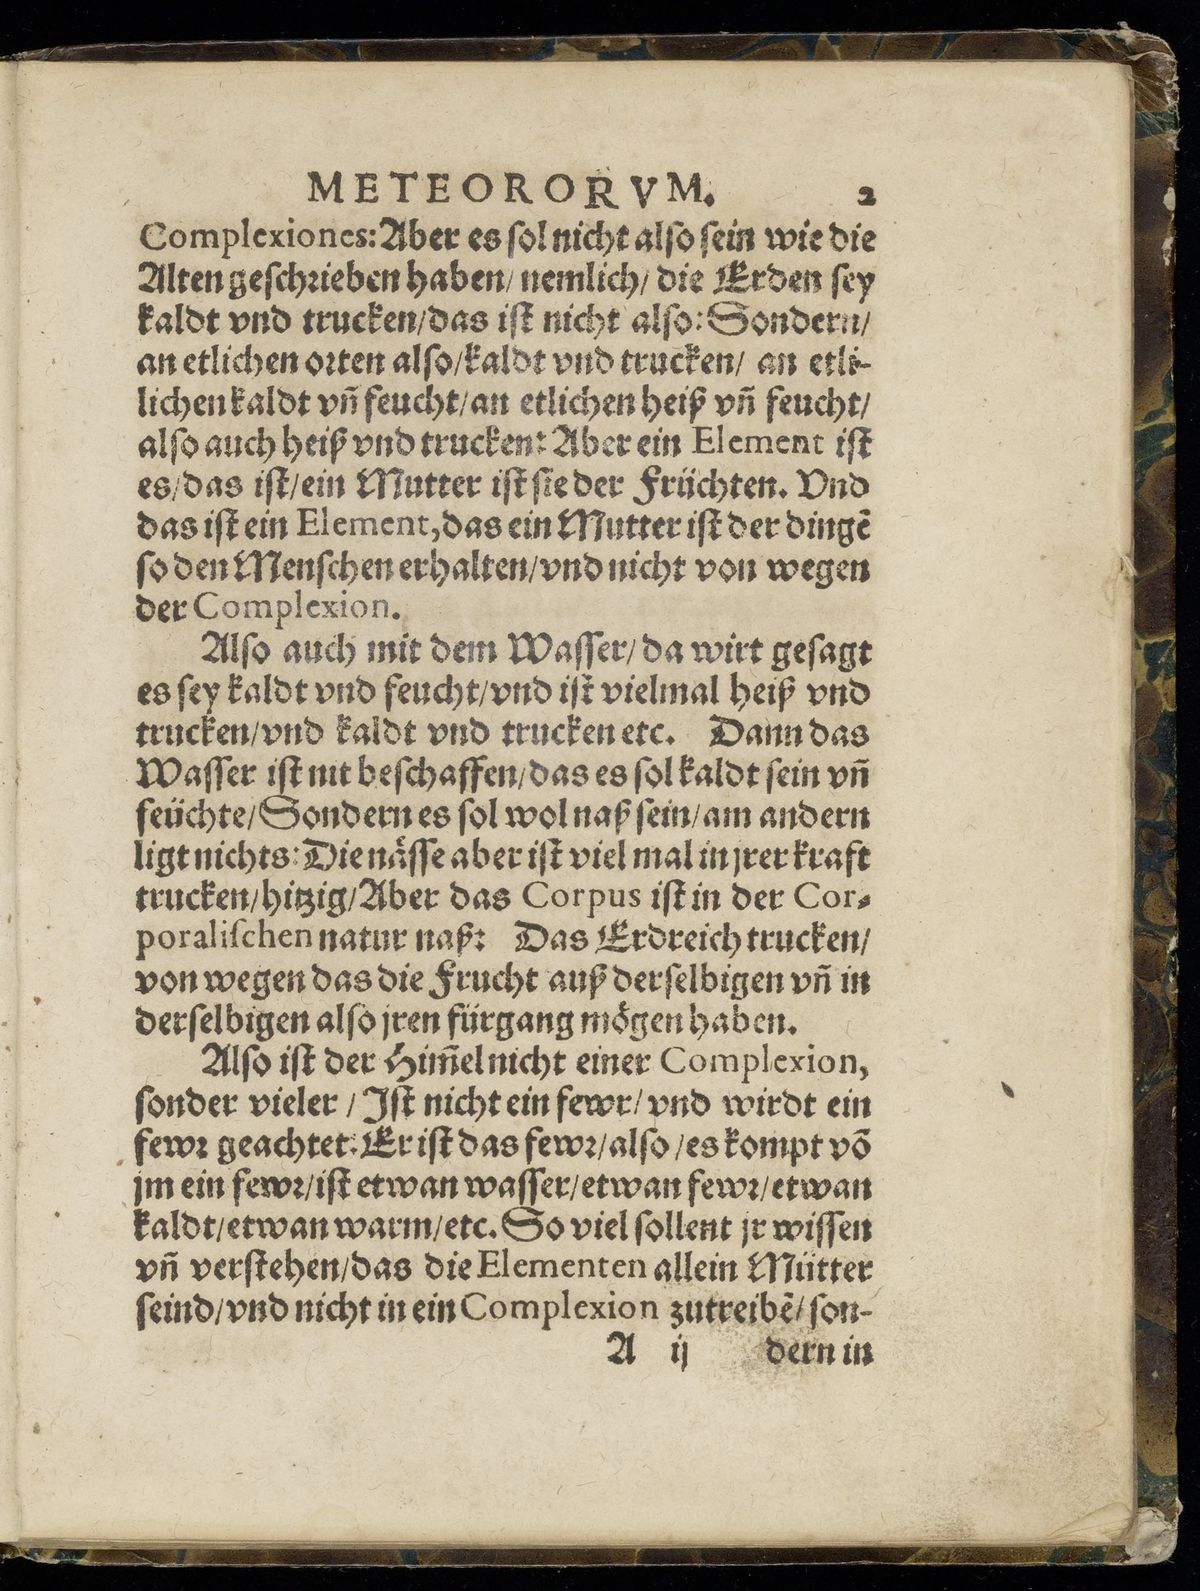 METEORORVM. 2
Complexiones: Aber es sol nicht also sein wie die
Alten geschrieben haben/ nemlich/ die Erden sey
kaldt vnd trucken/das ist nicht also: Sondern/
an etlichen orten also/kaldt vnd trucken/ an etli-
lichen kaldt vñ feucht/an etlichen heiß vñ feucht/
also auch heiß vnd trucken: Aber ein Element ist
es/das ist/ein Mutter ist sie der Früchten. Vnd
das ist ein Element, das ein Mutter ist der dingẽ
so den Menschen erhalten/vnd nicht von wegen
der Complexion.
Also auch mit dem Wasser/ da wirt gesagt
es sey kaldt vnd feucht/vnd ist vielmal heiß vnd
trucken/vnd kaldt vnd trucken etc. Dann das
Wasser ist nit beschaffen/das es sol kaldt sein vñ
feüchte/Sondern es sol wol naß sein/am andern
ligt nichts: Die nässe aber ist viel mal in jrer kraft
trucken/hitzig/Aber das Corpus ist in der Cor-
poralischen natur naß: Das Erdreich trucken/
von wegen das die Frucht auß derselbigen vñ in
derselbigen also jren fürgang mögen haben.
Also ist der Him̃el nicht einer Complexion,
sonder vieler / Ist nicht ein fewr/ vnd wirdt ein
fewr geachtet: Er ist das fewr/also /es kompt võ
jm ein fewr/ist etwan wasser/etwan fewr/etwan
kaldt/etwan warm/etc. So viel sollent jr wissen
vñ verstehen/das die Elementen allein Mütter
seind/vnd nicht in ein Complexion zutreibẽ/ son-
A ij dern in